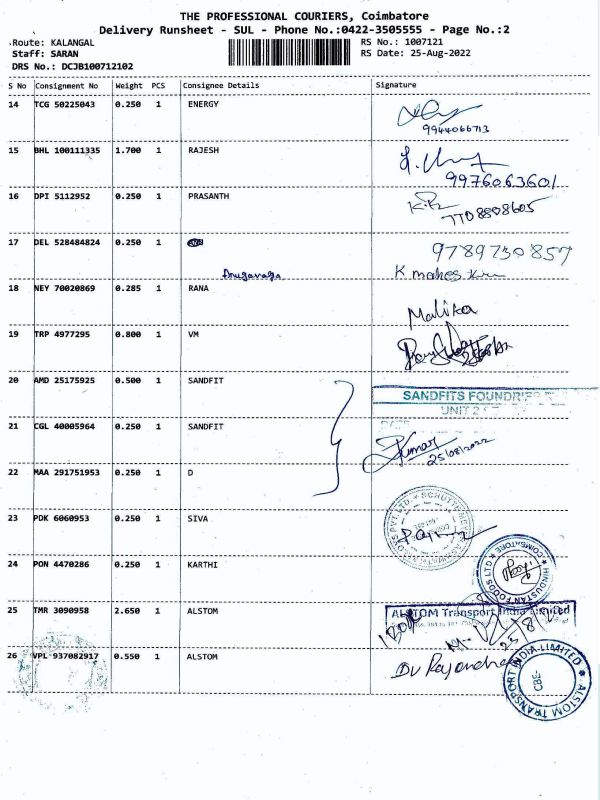 THE PROFESSIONAL COURIERS, Coimbatore
Delivery Runsheet - SUL - Phone No.:0422-3505555 - Page No.:2
Route: KALANGAL RS No.: 1007121
Staff: SARAN RS Date: 25-Aug-2022
DRS No.: DCJB100712102
S No Consignment No Weight PCS Consignee Details Signature
14 TCG 50225043 0.250 1 ENERGY
9944066713
15 BHL 100111335 1.700 1 RAJESH
9976063601
16 DPI 5112952 0.250 1 PRASANTH
7708808605
17 DEL 528484824 0.250 1 9789730857
K mahes
18 NEY 70020869 0.285 1 RANA
Malika
19 TRP 4977295 0.800 1 VM
20 AMD 25175925 0.500 1 SANDFIT
SANDFITS FOUNDRIES
UNIT 2
21 CGL 40005964 0.250 1 SANDFIT
DATE
Kumar
25/08/2022
22 MAA 291751953 0.250 1 D
23 PDK 6060953 0.250 1 SIVA
24 PON 4470286 0.250 1 KARTHI
HINDUSTAN FOODS LTD COIMBATORE
25 TMR 3090958 2.650 1 ALSTOM
ALSTOM Transport India Limited
25/8/
26 VPL 937082917 0.550 1 ALSTOM
ALSTOM TRANSPORT INDIA LIMITED
CBE-